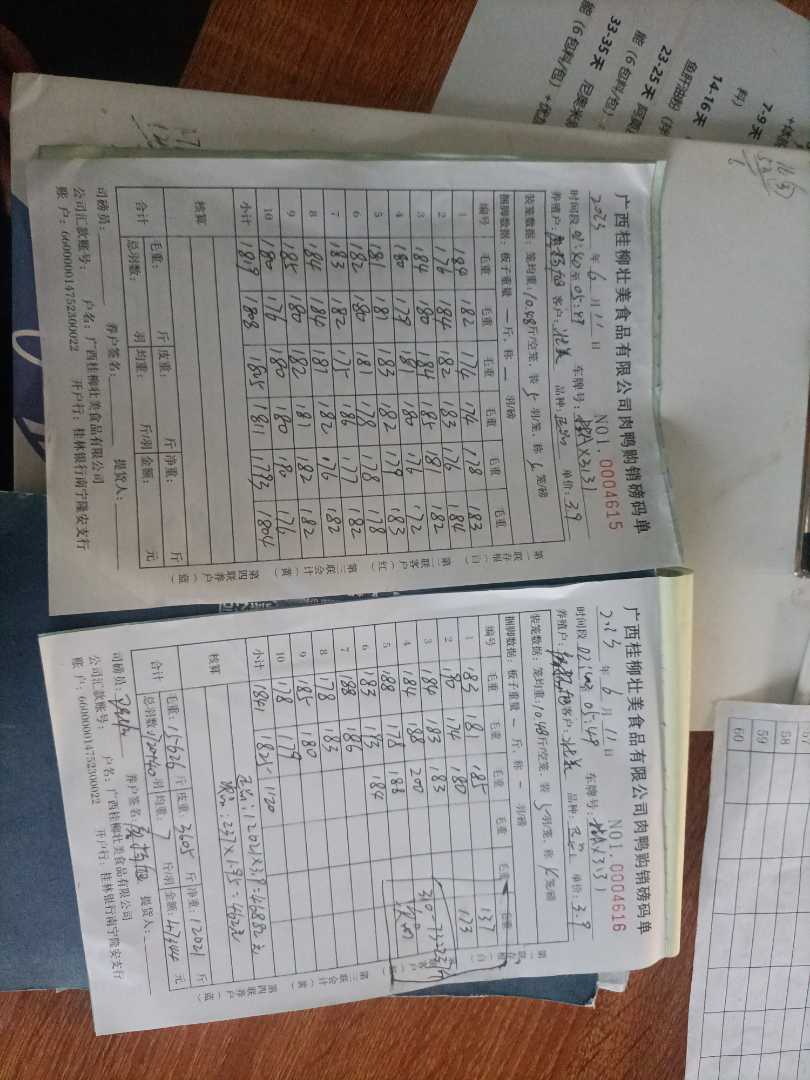 广西桂柳壮美食品有限公司肉鸭购销磅码单
NO1. 0004615
2025 年 6 月 11 日 车牌号: 桂AX3131
养殖户: 客户: 壮美 品种: 单价: 3.9
装笼数据: 笼均重: 10.48斤/空笼, 装 5 羽/笼, 称 6 笼/磅
捆脚数据: 板子重量 一 斤, 称 一 羽/磅
编号 毛重 毛重 毛重 毛重 毛重 毛重
1 184 182 174 174 178 183
2 176 184 182 183 176 184
3 184 180 184 185 181 182
4 180 179 181 180 176 172
5 181 181 183 182 179 183
6 182 180 181 178 178 178
7 183 182 175 186 177 182
8 184 184 181 182 176 182
9 185 180 182 181 182 182
10 180 176 180 180 180 176
小计 1819 1808 1811 1783 1804
核算
合计 毛重: 斤 皮重: 斤 净重: 斤
总羽数: 羽 均重: 斤/羽 金额: 元
司磅员: 养户签名: 提货人:
公司汇款账号: 户名: 广西桂柳壮美食品有限公司
账 户: 660000014752300022 开户行: 桂林银行南宁隆安支行
第一联存根(白) 第二联客户(红) 第三联会计(黄) 第四联养户(蓝)
广西桂柳壮美食品有限公司肉鸭购销磅码单
NO1. 0004616
2025 年 6 月 11 日
时间段 05:49 车牌号: 桂AX3131
养殖户: 客户: 壮美 品种: 单价: 3.9
装笼数据: 笼均重: 10.48斤/空笼, 装 5 羽/笼, 称 6 笼/磅
捆脚数据: 板子重量 一 斤, 称 一 羽/磅
编号 毛重 毛重 毛重 毛重 毛重 毛重
1 183 181 185 137
2 180 174 180 173
3 184 183 183
4 184 188 200
5 188 178 188
6 183 193 184
7 188 186
8 178 183
9 185 180
10 178 179
小计 1841 1825 1120
核算
合计 毛重: 15626 斤 皮重: 3605 斤 净重: 12021 斤
总羽数: 羽 均重: 7 斤/羽 金额: 47344 元
司磅员: 养户签名: 提货人:
公司汇款账号: 户名: 广西桂柳壮美食品有限公司
账 户: 660000014752300022 开户行: 桂林银行南宁隆安支行
7-9天
14-16天
23-25天
33-35天
58
59
60